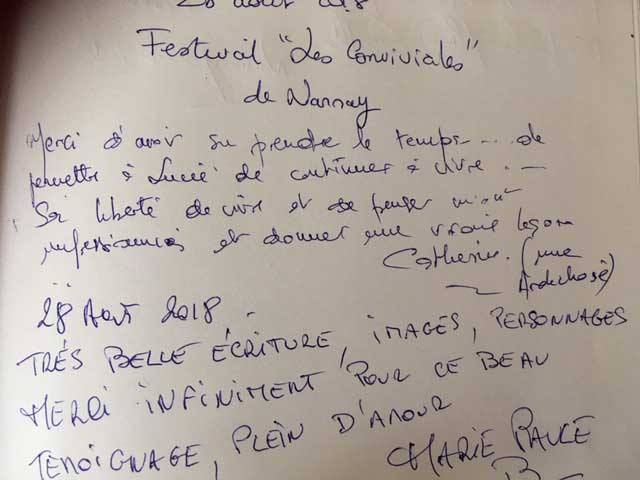 août 2018
Festival "Les Conviviales"
de Nannay
Merci d'avoir su prendre le temps... de
permettre à Lucie de continuer à vivre. —
Sa liberté de vivre et de penser m'ont
et donner une vraie leçon
Catherine. (une
Ardéchoise)
28 Août 2018.
TRÉS BELLE ÉCRITURE, IMAGES, PERSONNAGES
MERCI INFINIMENT POUR CE BEAU
TEMOIGNAGE, PLEIN D'AMOUR
MARIE PAULE
B